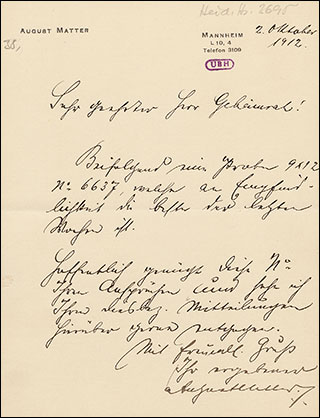 Heid. Hs. 2695
38,
AUGUST MATTER
MANNHEIM
L 10, 4
Telefon 3109
2. Oktober
1912.
UBH
Sehr geehrter Herr Geheimrat!
Beifolgend eine Probe 9x12
No 6637, welche an Empfind-
lichkeit die beste der letzten
Wochen ist.
Hoffentlich genügt diese No
Ihren Ansprüchen und sehe ich
Ihren diesbez. Mitteilungen
hierüber gerne entgegen.
Mit freundl. Gruß
Ihr ergebener
August Matter.